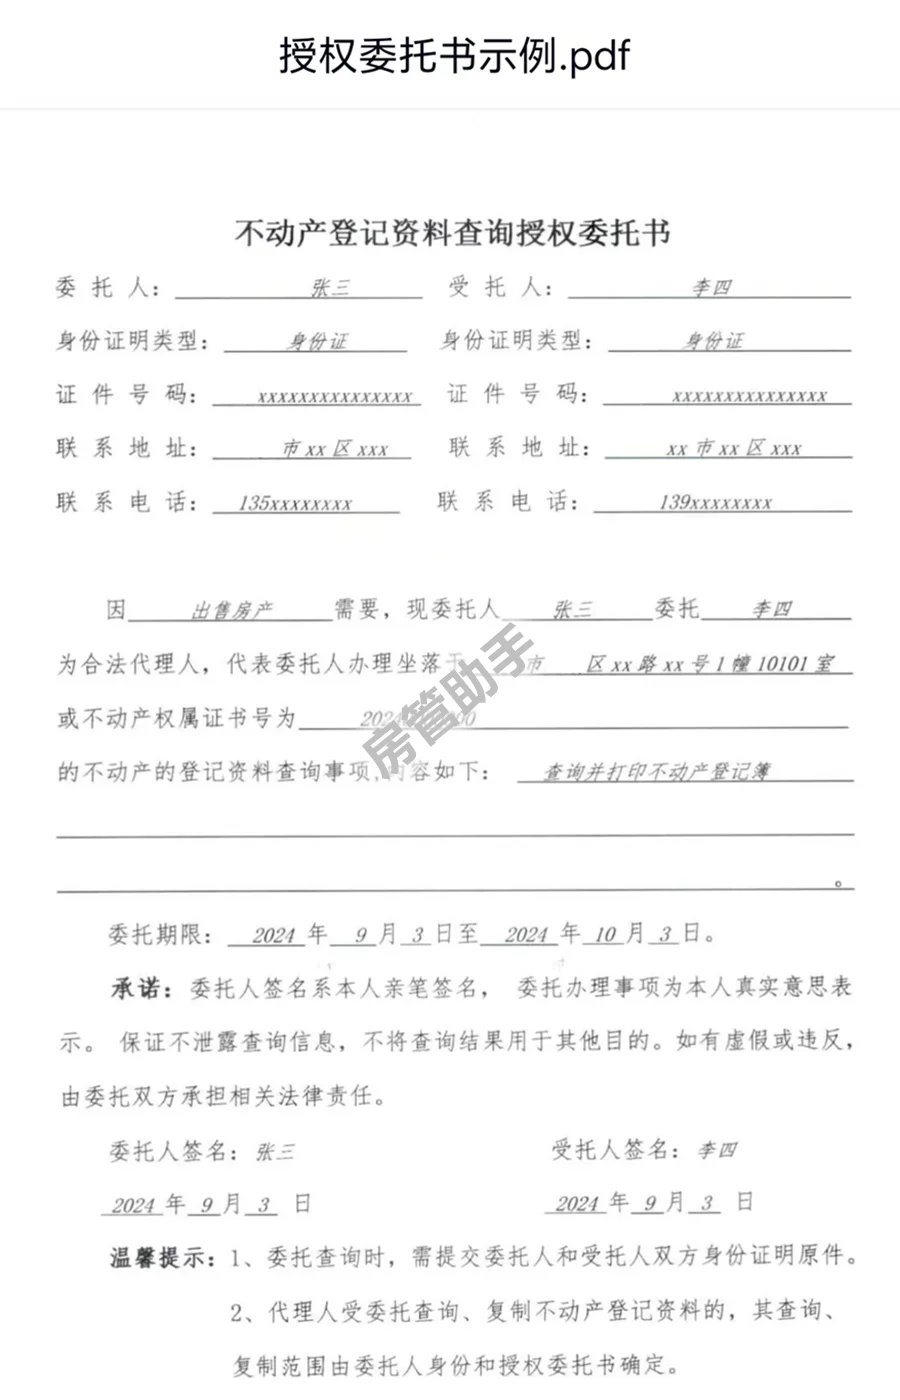 授权委托书示例.pdf
不动产登记资料查询授权委托书
委 托 人： 张三 受 托 人： 李四
身份证明类型： 身份证 身份证明类型： 身份证
证 件 号 码： xxxxxxxxxxxxxxx 证 件 号 码： xxxxxxxxxxxxxxx
联 系 地 址： 市 xx 区 xxx 联 系 地 址： xx 市 xx 区 xxx
联 系 电 话： 135xxxxxxxx 联 系 电 话： 139xxxxxxxx
因 出售房产 需要，现委托人 张三 委托 李四
为合法代理人，代表委托人办理坐落于 市 区 xx 路 xx 号 1 幢 10101 室
或不动产权属证书号为
的不动产的登记资料查询事项,内容如下： 查询并打印不动产登记簿
。
委托期限： 2024 年 9 月 3 日至 2024 年 10 月 3 日。
承诺：委托人签名系本人亲笔签名， 委托办理事项为本人真实意思表
示。 保证不泄露查询信息，不将查询结果用于其他目的。如有虚假或违反，
由委托双方承担相关法律责任。
委托人签名：张三 受托人签名：李四
2024 年 9 月 3 日 2024 年 9 月 3 日
温馨提示：1、委托查询时，需提交委托人和受托人双方身份证明原件。
2、代理人受委托查询、复制不动产登记资料的，其查询、
复制范围由委托人身份和授权委托书确定。
房管助手